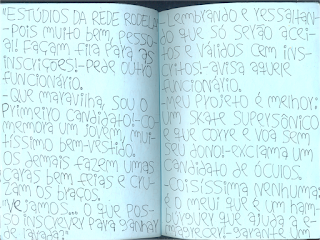 "ESTÚDIOS DA REDE RODELA
-Pois muito bem, pesso-
al! Façam fila para as
inscrições!-pede outro
funcionário.
-Que maravilha, sou o
primeiro candidato!-co-
memora um jovem, mui-
tíssimo bem-vestido.
Os demais fazem umas
caras bem feias e cru-
zam os braços.
"Vejamos... O que pos-
so inscrever para ganhar
de lavada?"
-Lembrando e ressaltan-
do que só serão acei-
tos e válidos cem ins-
critos!-avisa aquele
funcionário.
-Meu projeto é melhor:
um skate supersônico
que corre e voa sem
seu dono!-exclama um
candidato de óculos.
-Coisíssima nenhuma:
é o meu! que é um ham-
búrguer que ajuda a e-
magrecer!-garante um